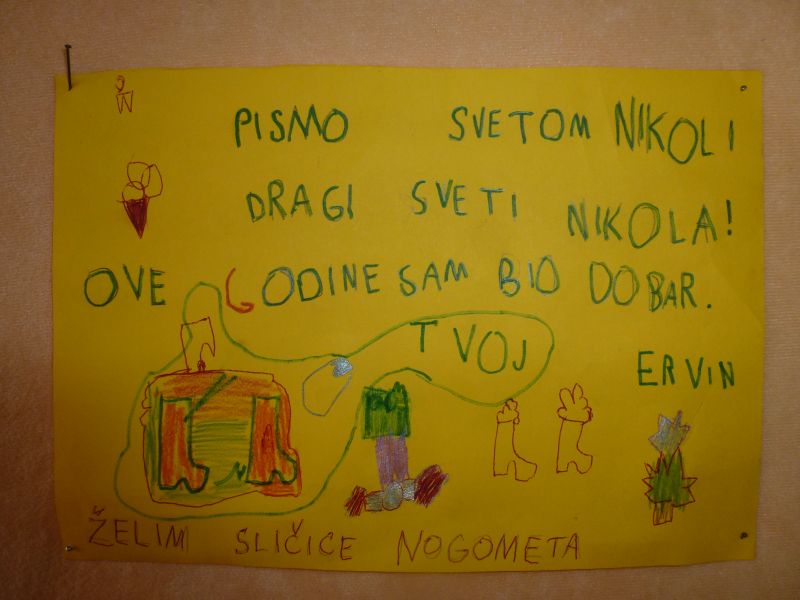 PISMO SVETOM NIKOLI
DRAGI SVETI NIKOLA!
OVE GODINE SAM BIO DOBAR.
TVOJ
ERVIN
ŽELIM SLIČICE NOGOMETA